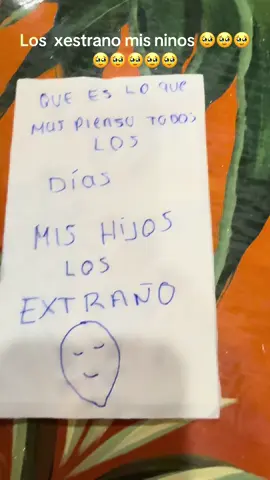 Los xestrano mis ninos 🥺🥺🥺
🥺🥺🥺🥺🥺
QUE ES LO QUE
MAS PIENSO TODOS
LOS
DÍAS
MIS HIJOS
LOS
EXTRAÑO